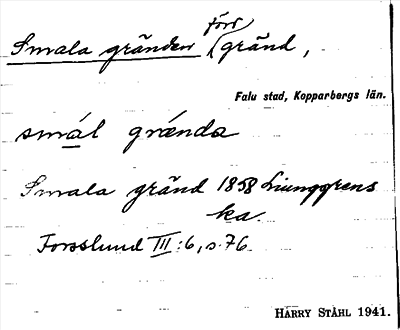 Smala gränden (förs gränd,
Falu stad, Kopparbergs län.
smál grǽnda
Smala gränd 1858 Liunggrens
ka.
Forsslund III:6, s. 76
HARRY STÅHL 1941.